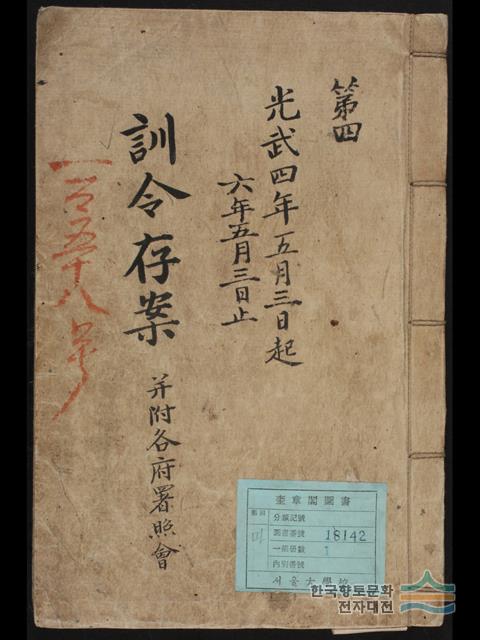 第四
光武四年五月三日起
六年五月三日止
訓令存案
并附各府署照會
一百五十八号
奎章閣圖書
分類記號
圖書番號 18142
一部冊數 1
內別番號
서울大學校
한국향토문화
전자대전